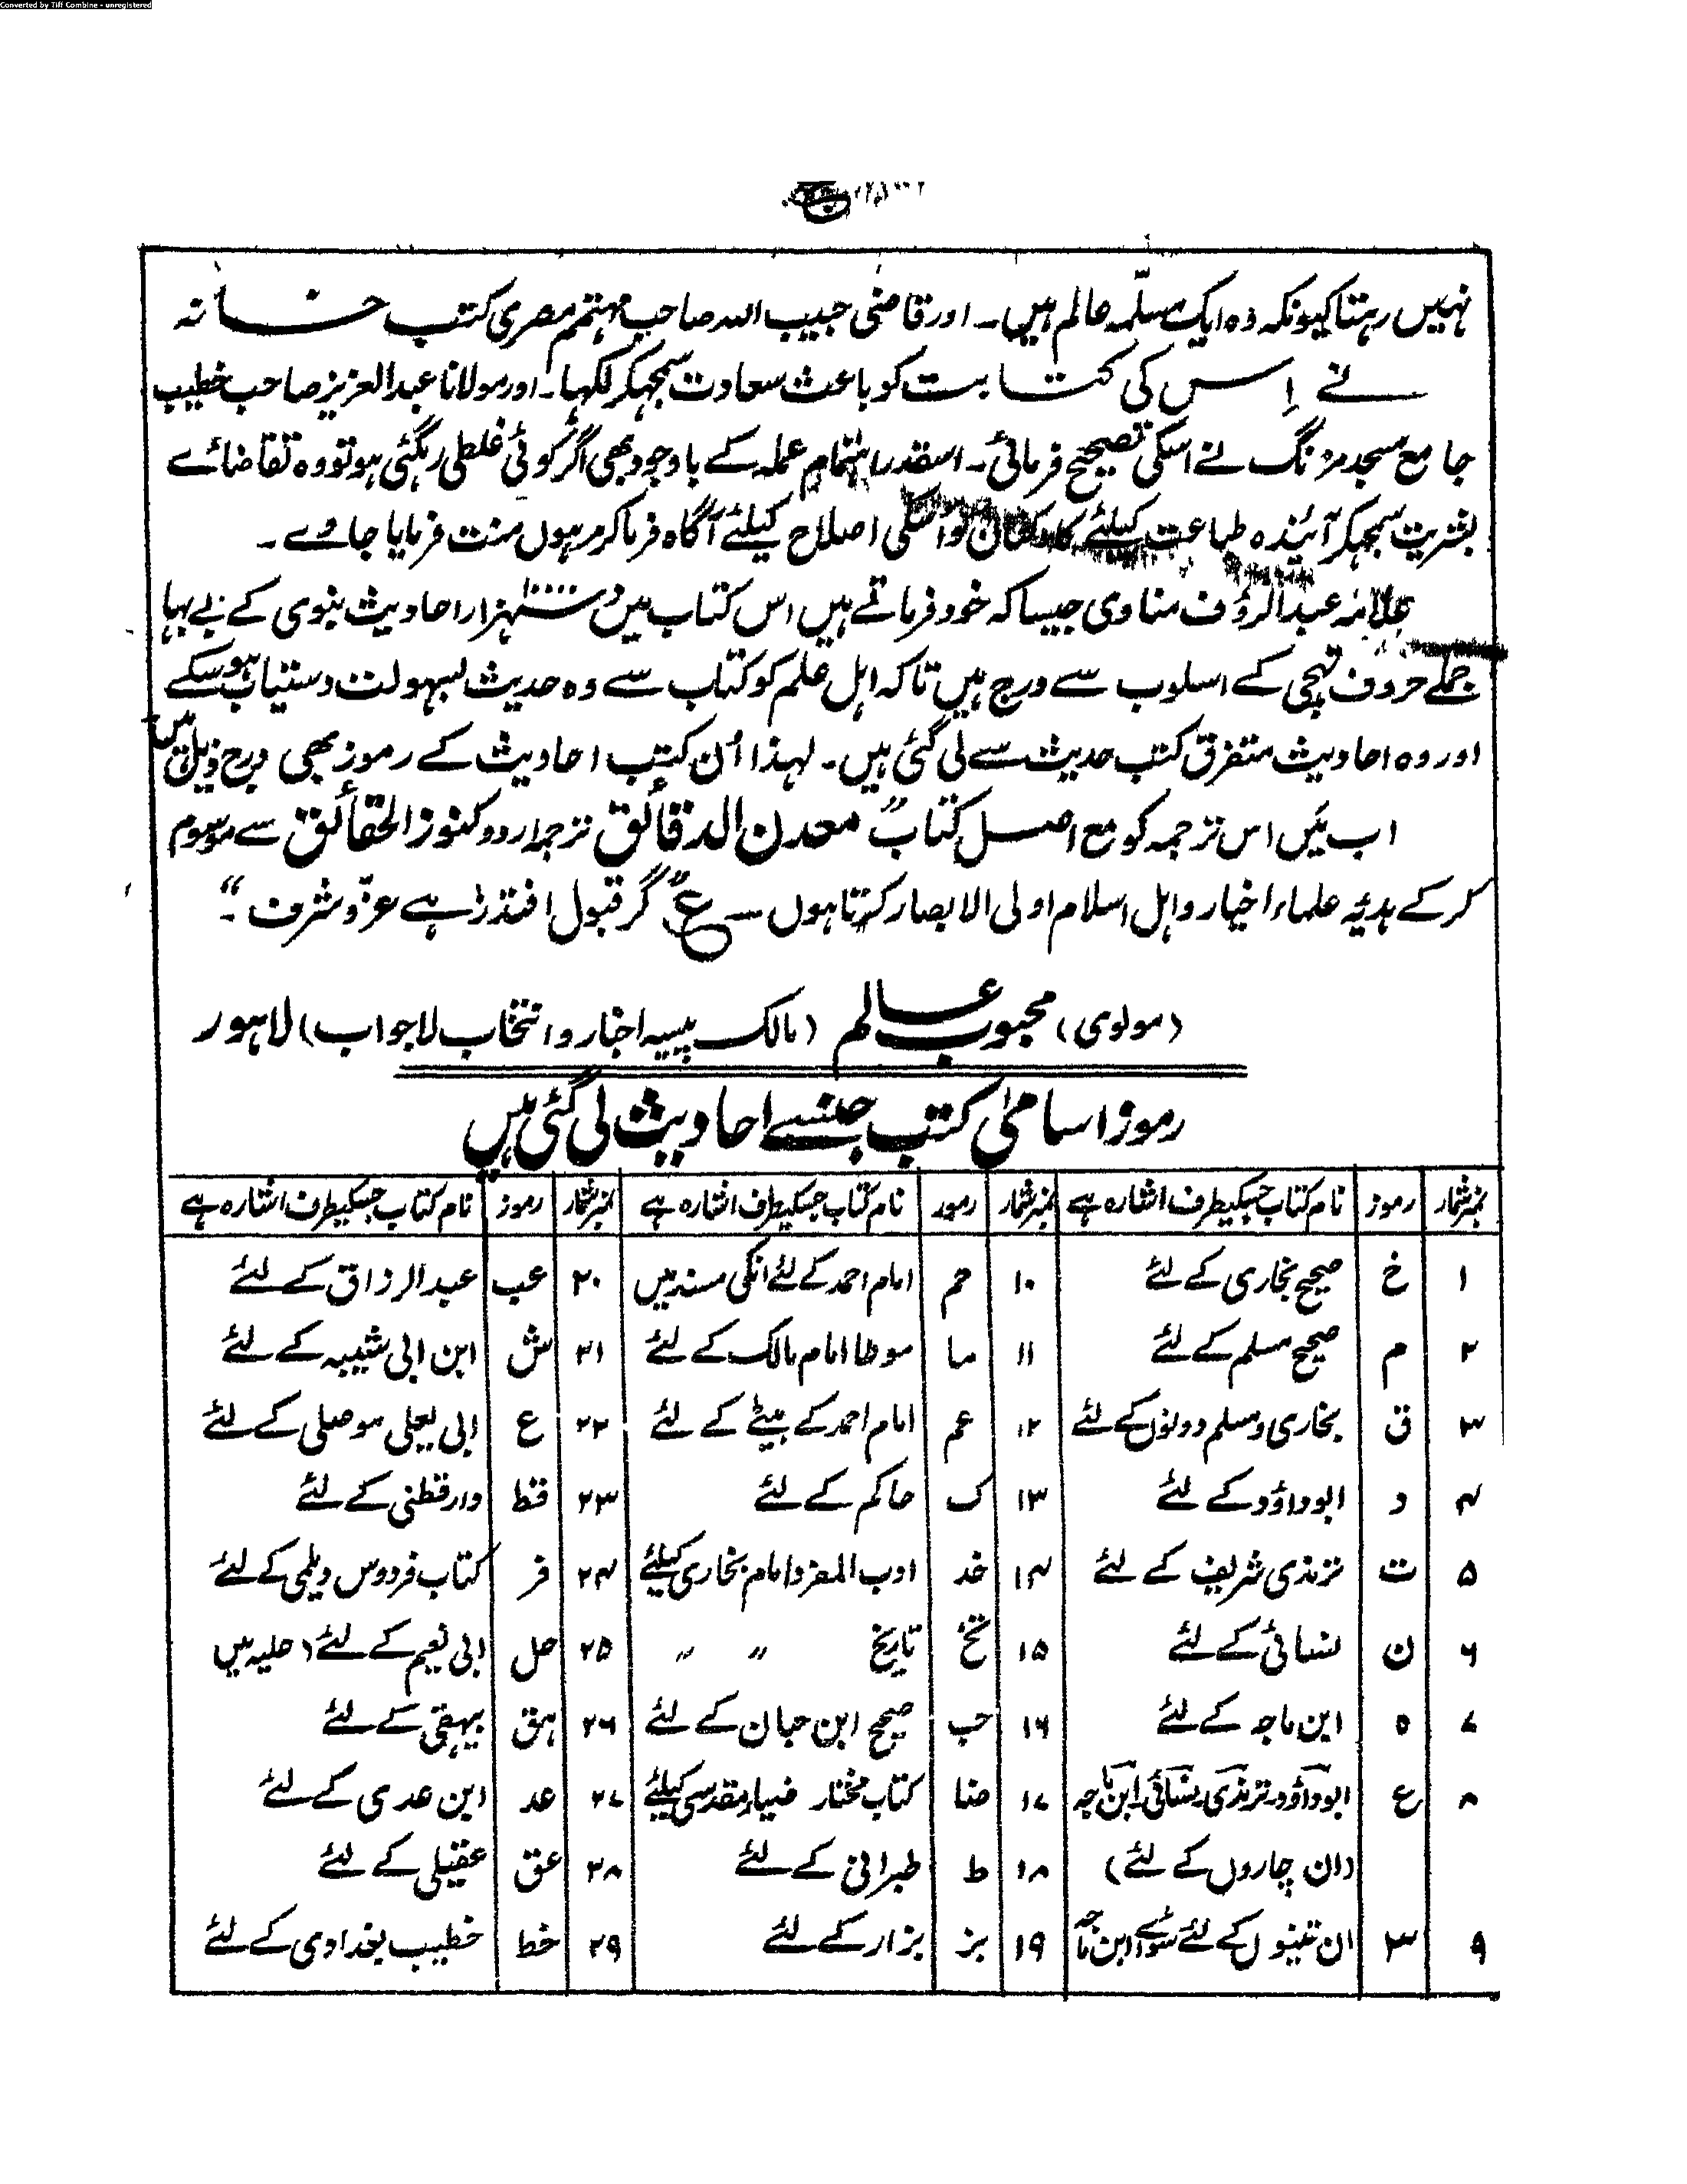 Converted by Tiff Combine - unregistered
نہیں رہتا کیونکہ وہ ایک مسلّمہ عالم ہیں۔ اور قاضی حبیب اللہ صاحب مہتمم مصری کتب خانہ
نے اِس کی کتابت کو باعث سعادت سمجہکر لکہا۔ اور مولانا عبدالعزیز صاحب خطیب
جامع مسجد مزنگ نے اسکی تصحیح فرمائی۔ اسقدر اہتمام عملہ کے باوجود بھی اگر کوئی غلطی رہگئی ہو تو وہ تقاضائے
بشریت سمجہکر آئندہ طباعت کیلئے کارکنان کو اسکی اصلاح کیلئے آگاہ فرما کر مرہون منت فرمایا جاوے۔
علامہ عبدالرؤف مناوی جیسا کہ خود فرماتے ہیں اس کتاب میں دس ہزار احادیث نبوی کے بے بہا
جملے حروف تہجی کے اسلوب سے درج ہیں تاکہ اہل علم کو کتاب سے وہ حدیث بسہولت دستیاب ہو سکے
اور وہ احادیث متفرق کتب حدیث سے لی گئی ہیں۔ لہذا اُن کتب احادیث کے رموز بھی درج ذیل ہیں
اب میَں اس ترجمہ کو مع اصل کتاب "معدن الدقائق ترجمہ اردو کنوز الحقائق سے موسوم
کر کے ہدیہ علماء اخیار و اہل اسلام اولی الابصار کرتا ہوں — ع "گر قبول افتد زہے عز و شرف"۔
(مولوی) محبوب عالم (مالک پیسہ اخبار و انتخاب لاجواب) لاہور
رموز اسامی کتب جنسے احادیث لی گئی ہیں
نمبرشمار رموز نام کتاب جسکیطرف اشارہ ہے نمبرشمار رموز نام کتاب جسکیطرف اشارہ ہے نمبرشمار رموز نام کتاب جسکیطرف اشارہ ہے
۱ خ صحیح بخاری کے لئے ۱۰ حم امام احمد کے لئے انکی مسند میں ۲۰ عب عبدالرزاق کے لئے
۲ م صحیح مسلم کے لئے ۱۱ ما موطا امام مالک کے لئے ۲۱ ش ابن ابی شیبہ کے لئے
۳ ق بخاری و مسلم دونوں کے لئے ۱۲ عم امام احمد کے بیٹے کے لئے ۲۲ ع ابی یعلی موصلی کے لئے
۴ د ابو داؤد کے لئے ۱۳ ک حاکم کے لئے ۲۳ قط دارقطنی کے لئے
۵ ت ترمذی شریف کے لئے ۱۴ خد ادب المفرد امام بخاری کیلئے ۲۴ فر کتاب فردوس دیلمی کے لئے
۶ ن نسائی کے لئے ۱۵ تخ تاریخ " " ۲۵ حل ابی نعیم کے لئے (حلیہ میں
۷ ہ ابن ماجہ کے لئے ۱۶ حب صحیح ابن حبان کے لئے ۲۶ ہق بیہقی کے لئے
۸ ع ابوداؤد، ترمذی، نسائی، ابن ماجہ ۱۷ ضا کتاب مختار ضیاء مقدسی کیلئے ۲۷ عد ابن عدی کے لئے
(ان چاروں کے لئے) ۱۸ ط طبرانی کے لئے ۲۸ عق عقیلی کے لئے
۹ ۳ ان تینوں کے لئے سوائے ابن ماجہ ۱۹ بز بزار کے لئے ۲۹ خط خطیب بغدادی کے لئے